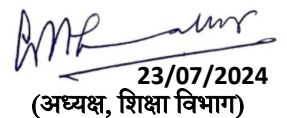 23/07/2024
(अध्यक्ष, शिक्षा विभाग)